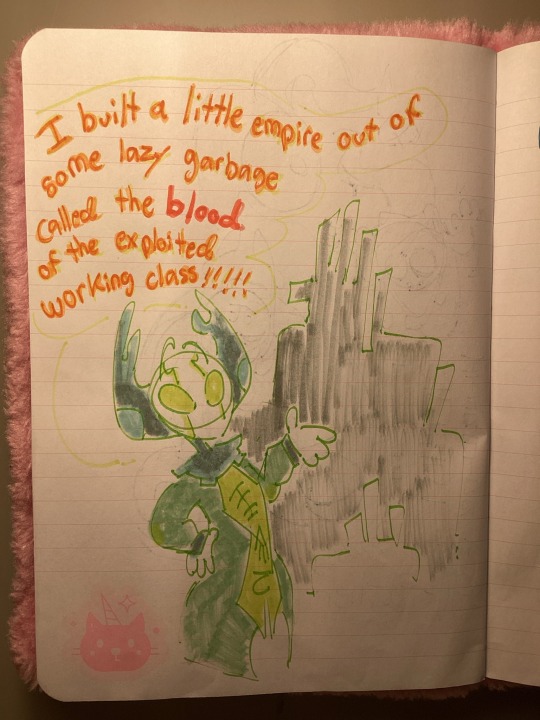 I built a little empire out of
some lazy garbage
called the blood
of the exploited
working class!!!!!